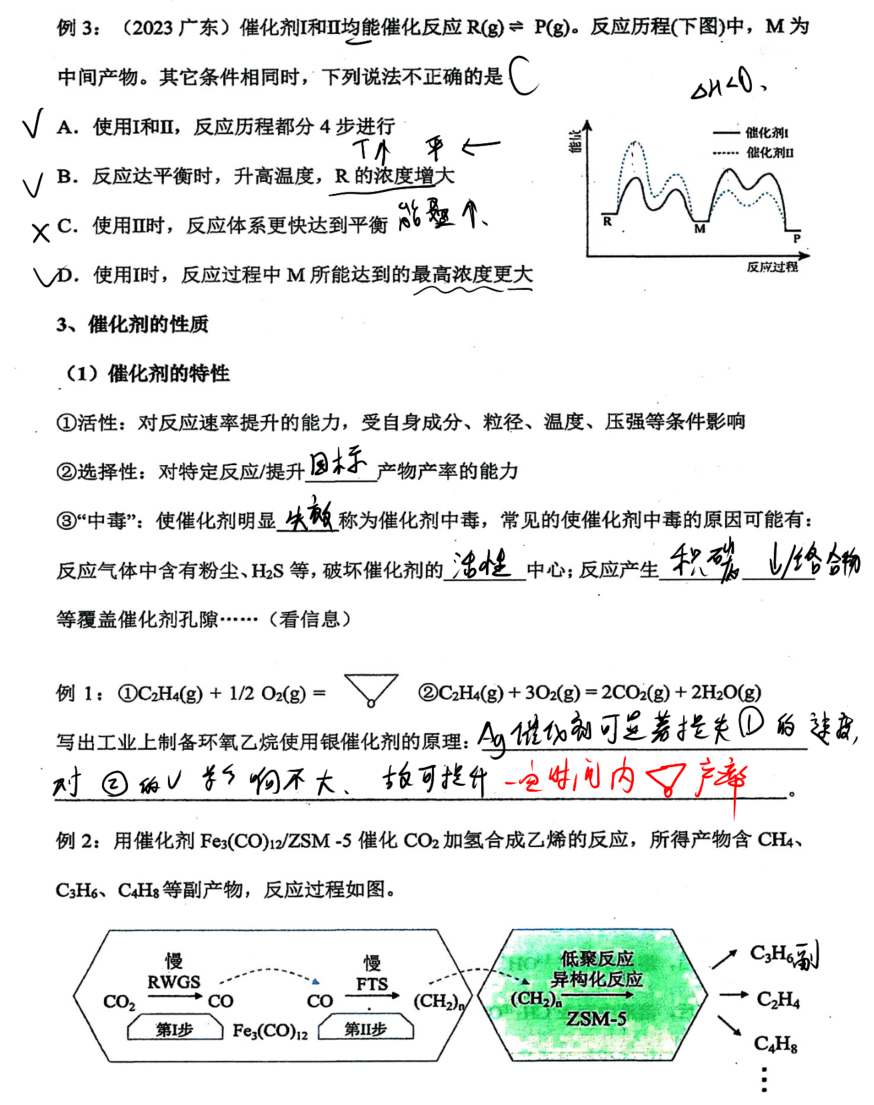 例 3：（2023 广东）催化剂I和II均能催化反应 R(g) ⇌ P(g)。反应历程(下图)中，M 为
中间产物。其它条件相同时，下列说法不正确的是 C
ΔH<0、
√ A．使用I和II，反应历程都分 4 步进行
T↑ 平 ←
√ B．反应达平衡时，升高温度，R 的浓度增大
× C．使用II时，反应体系更快达到平衡 能垒↑、
√ D．使用I时，反应过程中 M 所能达到的最高浓度更大
能量
催化剂I
催化剂II
R
M
P
反应过程
3、催化剂的性质
（1）催化剂的特性
①活性：对反应速率提升的能力，受自身成分、粒径、温度、压强等条件影响
②选择性：对特定反应/提升 目标 产物产率的能力
③“中毒”：使催化剂明显 失效 称为催化剂中毒，常见的使催化剂中毒的原因可能有：
反应气体中含有粉尘、H₂S 等，破坏催化剂的 活性 中心；反应产生 积碳 /络合物
等覆盖催化剂孔隙……（看信息）
例 1：①C₂H₄(g) + 1/2 O₂(g) = O ②C₂H₄(g) + 3O₂(g) = 2CO₂(g) + 2H₂O(g)
写出工业上制备环氧乙烷使用银催化剂的原理： Ag 催化剂可显著提高①的速度，
对②的 v 影响不大、故可提升一定时间内 O 产率 。
例 2：用催化剂 Fe₃(CO)₁₂/ZSM -5 催化 CO₂ 加氢合成乙烯的反应，所得产物含 CH₄、
C₃H₆、C₄H₈ 等副产物，反应过程如图。
慢 慢 低聚反应 C₃H₆ 副
RWGS FTS 异构化反应
CO₂ CO CO (CH₂)ₙ (CH₂)ₙ C₂H₄
第I步 Fe₃(CO)₁₂ 第II步 ZSM-5
C₄H₈
⋮